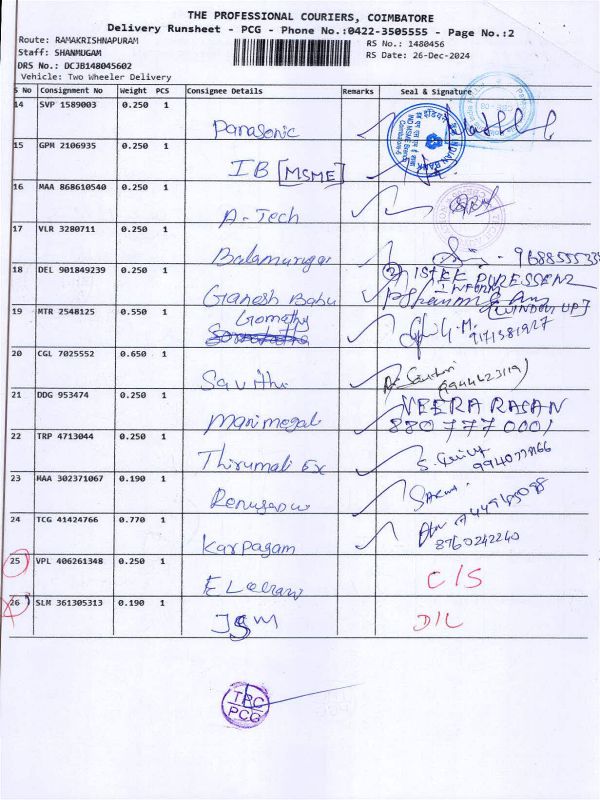 THE PROFESSIONAL COURIERS, COIMBATORE
Delivery Runsheet - PCG - Phone No.:0422-3505555 - Page No.:2
Route: RAMAKRISHNAPURAM
RS No.: 1480456
Staff: SHANMUGAM
RS Date: 26-Dec-2024
DRS No.: DCJB148045602
Vehicle: Two Wheeler Delivery
S No Consignment No Weight PCS Consignee Details Remarks Seal & Signature
14 SVP 1589003 0.250 1 Panasonic
15 GPM 2106935 0.250 1 IB [MSME]
INDIAN BANK
16 MAA 868610540 0.250 1 A-Tech
17 VLR 3280711 0.250 1 Balamurugan
18 DEL 901849239 0.250 1 Ganesh Babu
19 MTR 2548125 0.550 1 Gomathy
20 CGL 7025552 0.650 1 Savithi
21 DDG 953474 0.250 1 Manimegal VEERA RAGAN
8807770001
22 TRP 4713044 0.250 1 Thirumali Ex
23 MAA 302371067 0.190 1
24 TCG 41424766 0.770 1 Karpagam 8760242240
25 VPL 406261348 0.250 1 C/S
26 SLM 361305313 0.190 1 JSM D/L
TRC
PCG